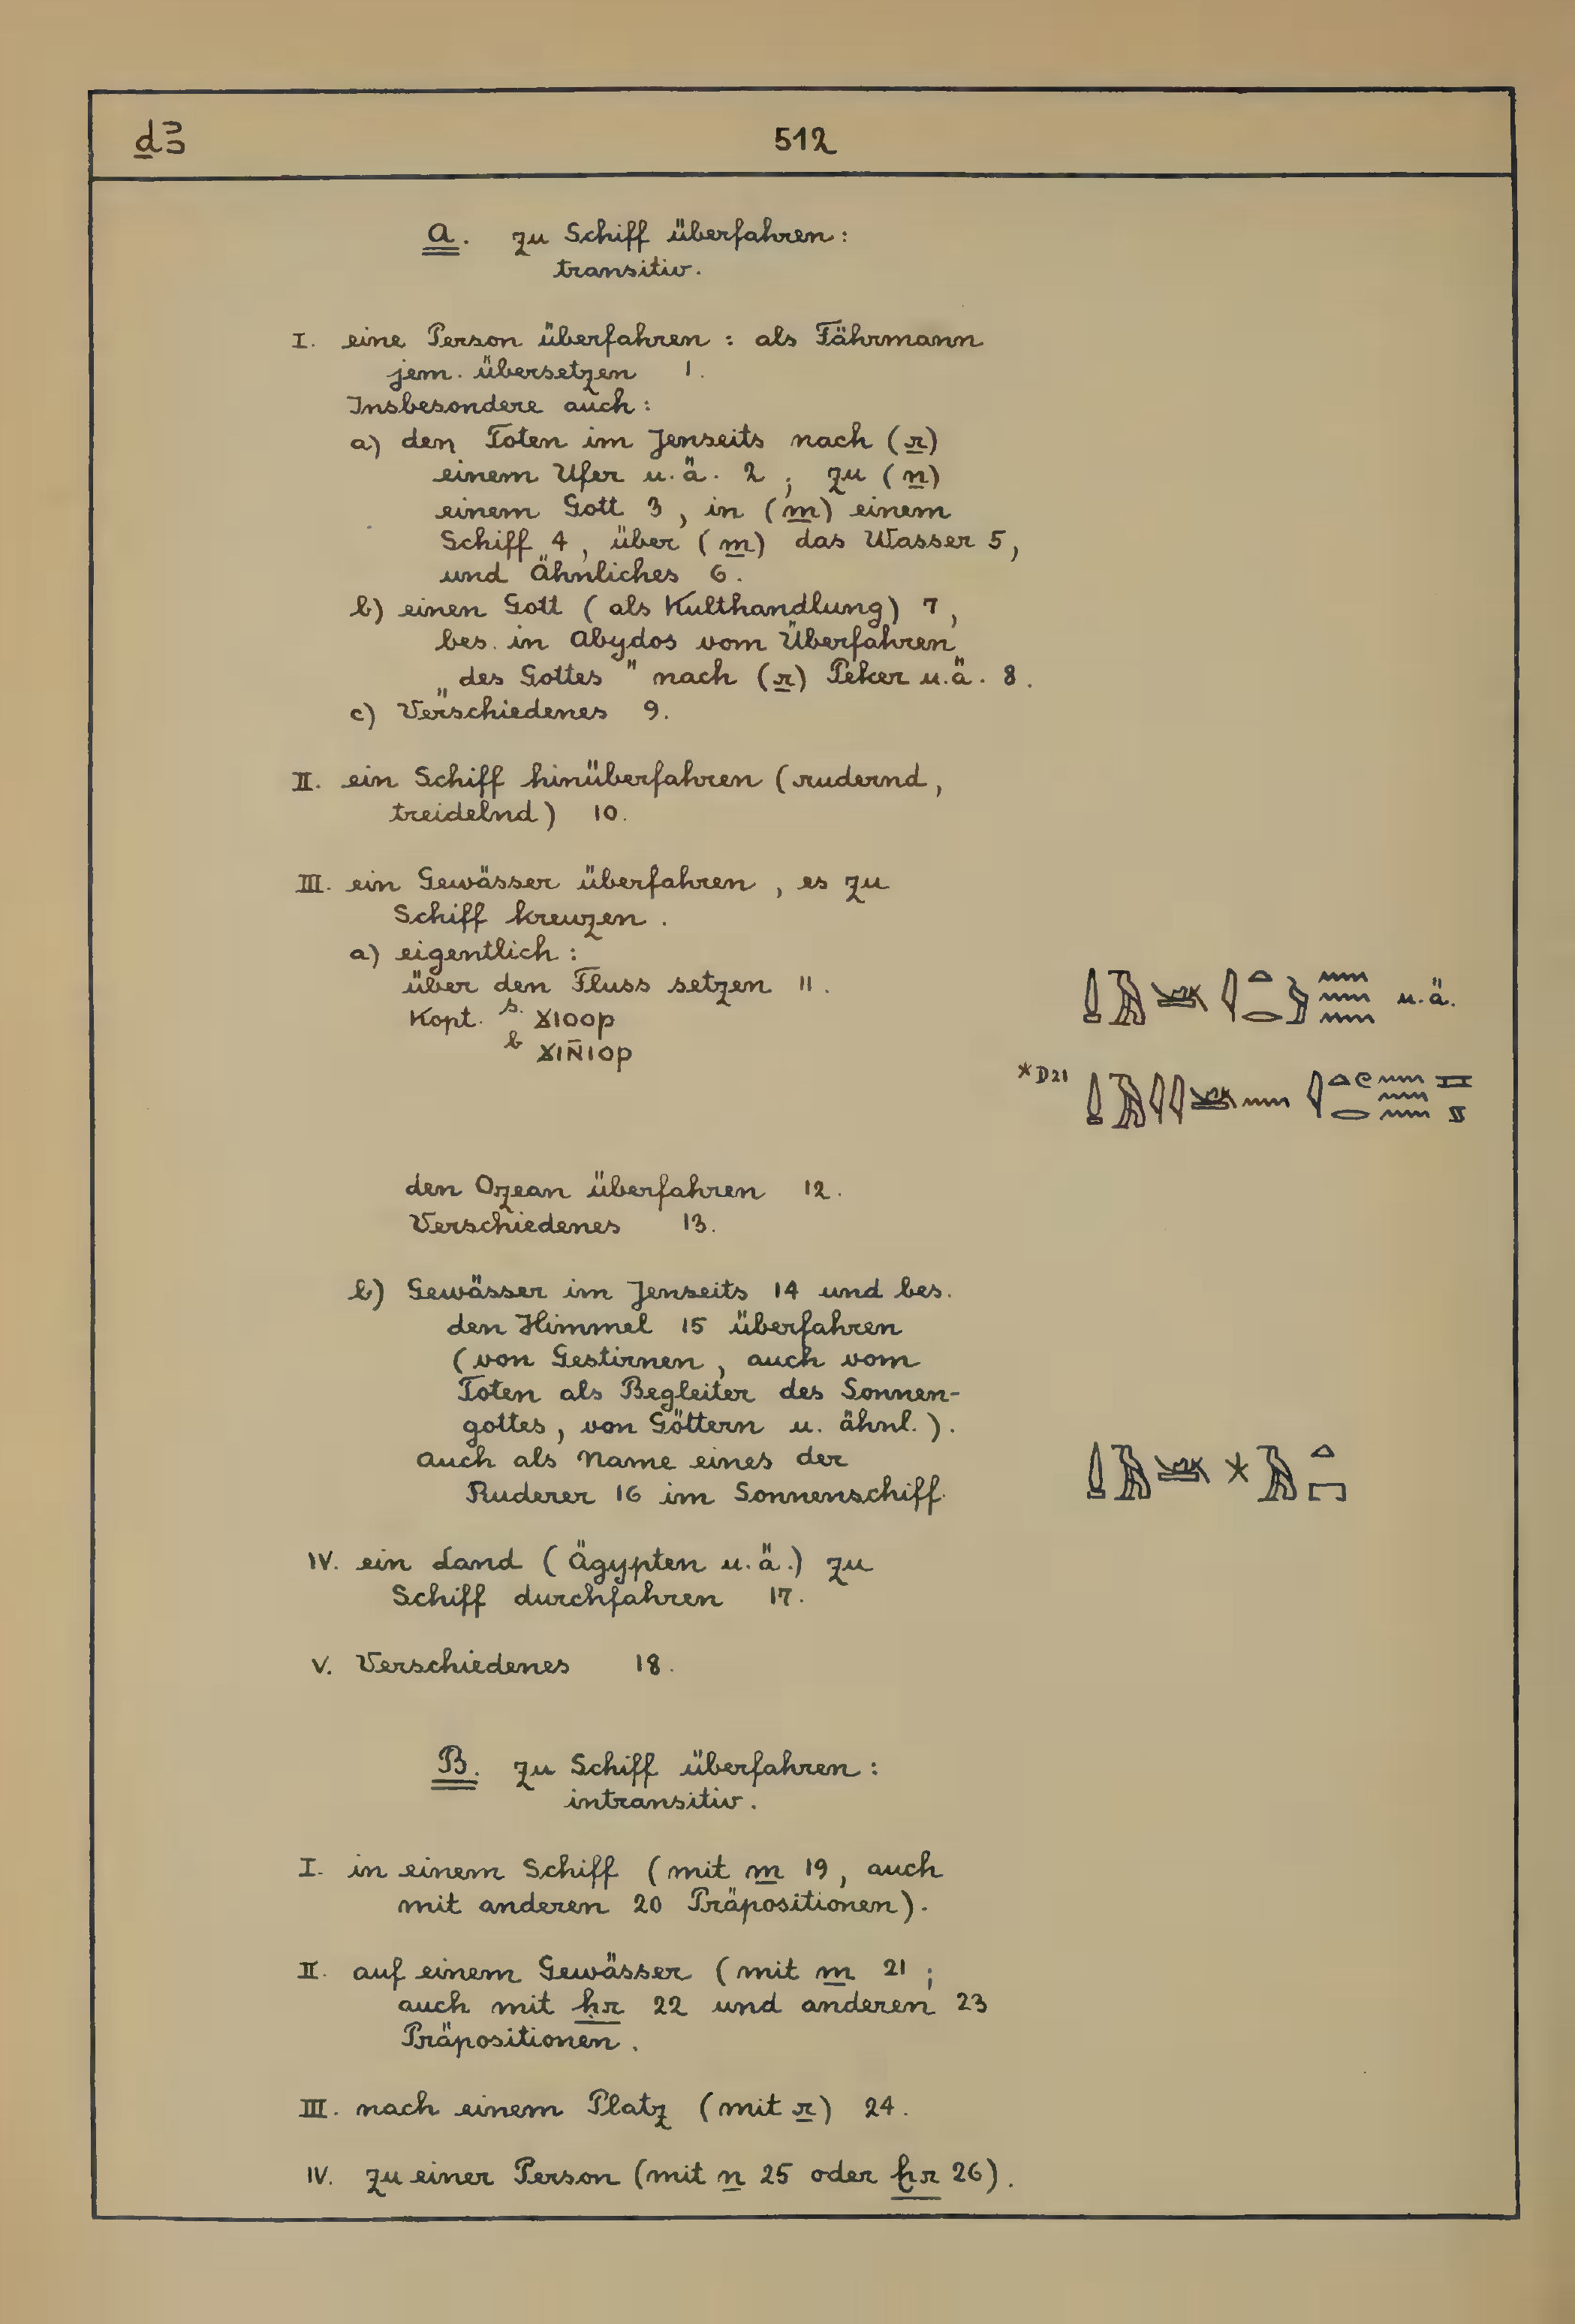 ḏꜣ
512
A. zu Schiff überfahren:
transitiv.
I. eine Person überfahren: als Fährmann
jem. übersetzen 1.
Insbesondere auch:
a) den Toten im Jenseits nach (r)
einem Ufer u.ä. 2; zu (n)
einem Gott 3, in (m) einem
Schiff 4, über (m) das Wasser 5,
und Ähnliches 6.
b) einen Gott (als Kulthandlung) 7,
bes. in Abydos vom Überfahren
„des Gottes" nach (r) Peker u.ä. 8.
c) Verschiedenes 9.
II. ein Schiff hinüberfahren (rudernd,
treidelnd) 10.
III. ein Gewässer überfahren, es zu
Schiff kreuzen.
a) eigentlich:
über den Fluss setzen 11. u.ä.
Kopt. S. ϫⲓⲟⲟⲣ
b ϫⲓⲛ̄ⲓⲟⲣ
*D21
den Ozean überfahren 12.
Verschiedenes 13.
b) Gewässer im Jenseits 14 und bes.
den Himmel 15 überfahren
(von Gestirnen, auch vom
Toten als Begleiter des Sonnen-
gottes, von Göttern u. ähnl.).
Auch als Name eines der
Ruderer 16 im Sonnenschiff.
IV. ein Land (Ägypten u.ä.) zu
Schiff durchfahren 17.
V. Verschiedenes 18.
B. zu Schiff überfahren:
intransitiv.
I. in einem Schiff (mit m 19, auch
mit anderen 20 Präpositionen).
II. auf einem Gewässer (mit m 21;
auch mit ḥr 22 und anderen 23
Präpositionen.
III. nach einem Platz (mit r) 24.
IV. zu einer Person (mit n 25 oder ẖr 26).